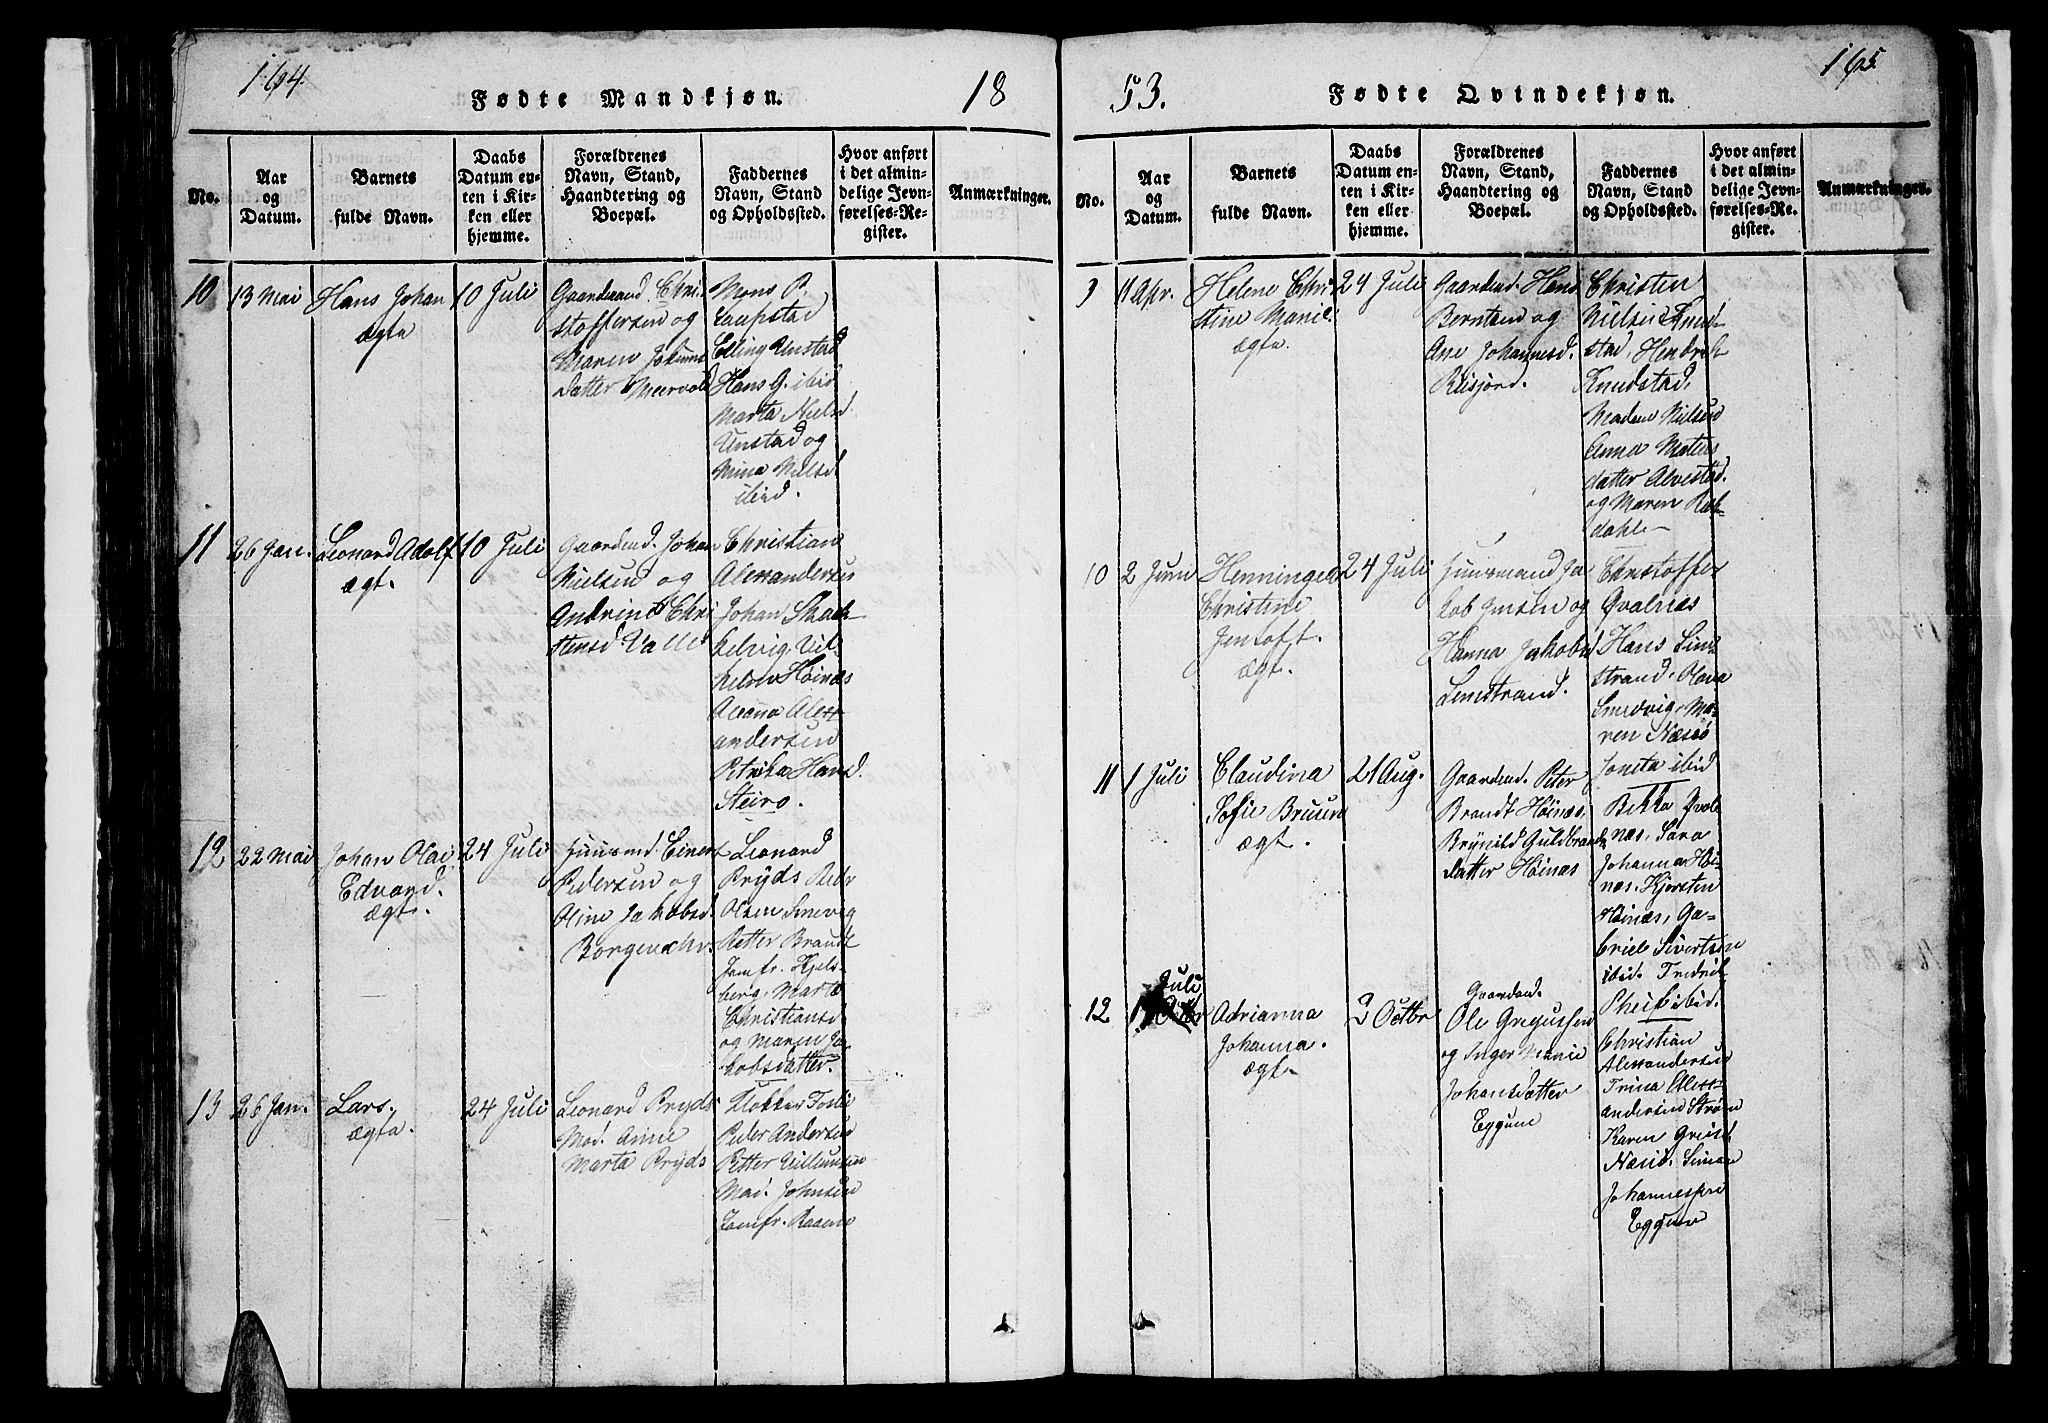 164.
Fødte Mandkjøn.
18
No.
Aar
og
Datum.
Barnets
fulde Navn.
Daabs
Datum en-
ten i Kir-
ken eller
hjemme.
Forældrenes
Navn, Stand,
Haandtering og
Boepæl.
Faddernes
Navn, Stand
og Opholdssted.
Hvor anført
i det almin-
delige Jevn-
førelses-Re-
gister.
Anmærkninger.
10
13 Mai
Hans Johan
ægte
10 Juli
Gaardmand Chri-
stoffersen og
Maren
datter
Mons P.
Laupstad
Elling Unstad
Hans G. ibid
Marta Niels
Unstad og
Mina Nilsd
ibid.
11
26 Jan.
Leonard Adolf
ægt.
10 Juli
Gaardmd. Johan
Nielsen og
Andrine Chri
stensd Valle
Christian
Alexandersen
Johan Skae
helvig. Vil-
helm Höinæs
Alexx
andersen
Petrika Hansd.
Steiro.
12
22 Mai
Johan Olai
Edvard.
ægt.
24 Juli
Huusmd. Einert
Pedersen og
Oline Jakobsd.
Leonard
Pryds Peder
Olsen Smevig
Petter Brandt
Jomfr. Kjels-
berg. Marte
Christiansd
og Maren Ja-
kobsdatter.
13
26 Jan.
Lars.
ægte.
24 Juli
Leonard Pryds
Mad. Anne
Marta Pryds
Klokker
Peder Andersen
Petter Villumsen
Mad. Johnsen
Jomfr.
53.
Fødte Qvindekjøn.
165.
No.
Aar
og
Datum.
Barnets
fulde Navn.
Daabs
Datum en-
ten i Kir-
ken eller
hjemme.
Forældrenes
Navn, Stand,
Haandtering og
Boepæl.
Faddernes
Navn, Stand
og Opholdssted.
Hvor anført
i det almin-
delige Jevn-
førelses-Re-
gister.
Anmærkninger.
9
11 Apr.
Helene Chri-
stine Marie.
ægte.
24 Juli
Gaardmd. Hans
Berntsen og
Ane Johannesd.
Christen
Nielsen Knud-
stad, Hendrik
Knudstad,
Madme Nielsen
Anna Matias
datter Alvestad.
og Maren Rek-
dahl
10
2 Juni
Henninged
Christine
Jentoft.
ægt.
24 Juli
Huusmand Ja
kob Jensen og
Hanna Jakobsd
Limstrand.
Christoffer
Qvalnæs
Hans Lim
strand. Olava
Smedvig, Ma-
ren Næsie
Joneta ibid
11
1 Juli
Claudina
Sofie Bruun
ægt.
21 Aug.
Gaardmd. Peter
Brandt Höinæs,
Brynild Guldbrands
datter Höinæs
Bekka Qval
næs. Sara
Johanna Höi-
næs. Kjersten
Höinæs, Ga-
briel Sivertsen
ibid. Fredrik
Pheif ibid.
12
1 Juli
Adrianna
Johanna.
ægt.
2 Octbr
Gaardmd.
Ole Gregussen
og Inger Marie
Johansdatter
Eggum
Christian
Alexandersen
Trina Alexx
andersen Ström
Karen Greisd
Næsie. Simon
Eggum